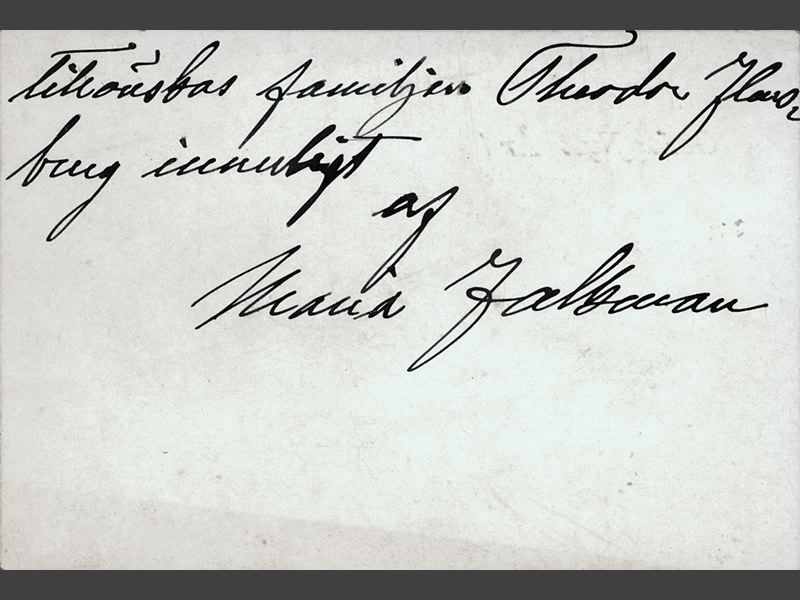 tillönskas familjen Theodor Flens-
burg innerligt
af
Maria Falkman